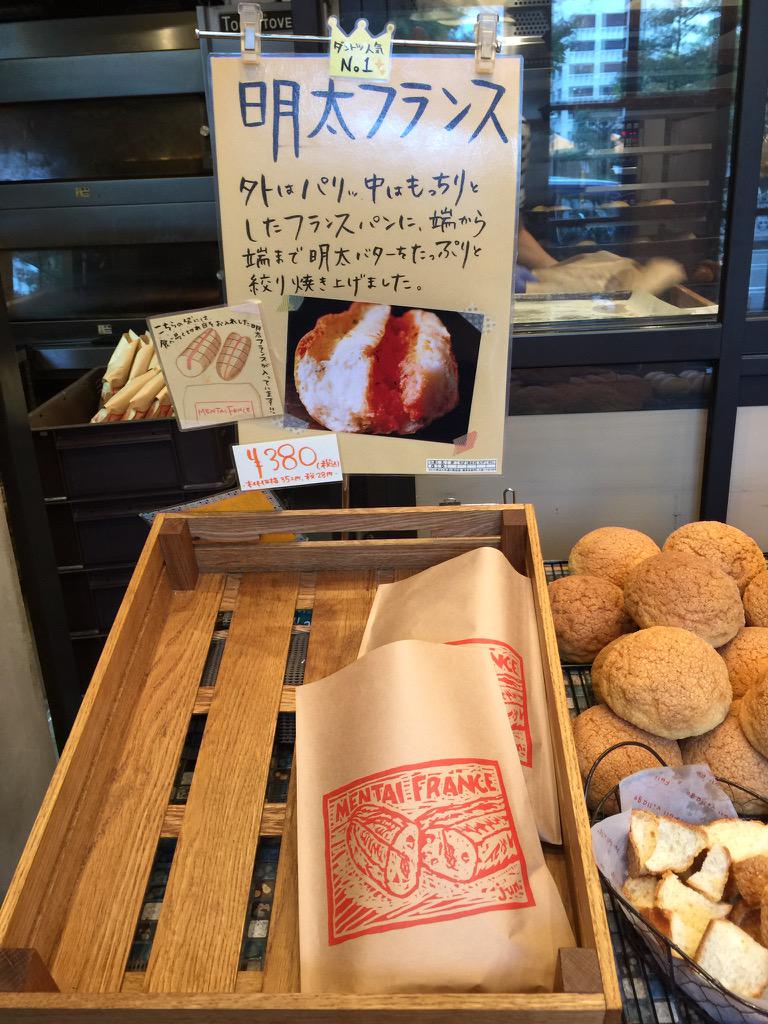 ダントツ人気
No.1
明太フランス
外はパリッ中はもっちりと
したフランスパンに、端から
端まで明太バターをたっぷりと
絞り焼き上げました。
こちらの袋には
食べ易く切れ目をお入れした明太フランスが入っています!!
MENTAI FRANCE
¥380(税込)
本体価格352円、税28円
MENTAI FRANCE
Jun.
NCE